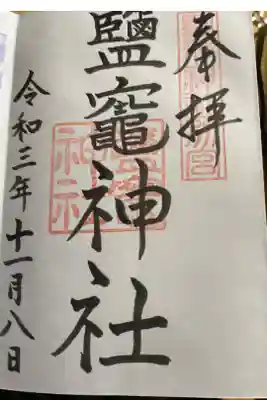 奉拝
鹽竈神社
令和三年十一月八日